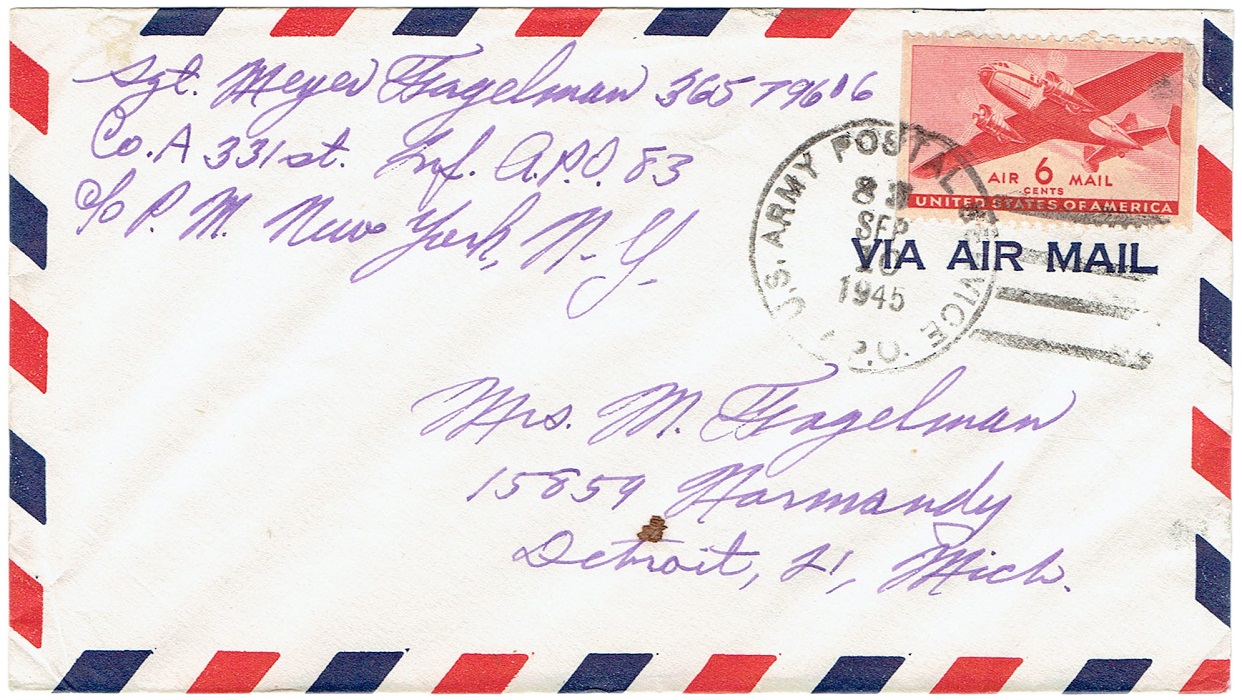 Sgt. Meyer Fragelman 36579616
Co. A 331st. Inf. A.P.O. 83
c/o P. M. New York, N. Y.
AIR 6 MAIL
CENTS
UNITED STATES OF AMERICA
U.S. ARMY POSTAL SERVICE
A.P.O.
83
SEP
10
1945
VIA AIR MAIL
Mrs. M. Fragelman
15859 Normandy
Detroit, 21, Mich.